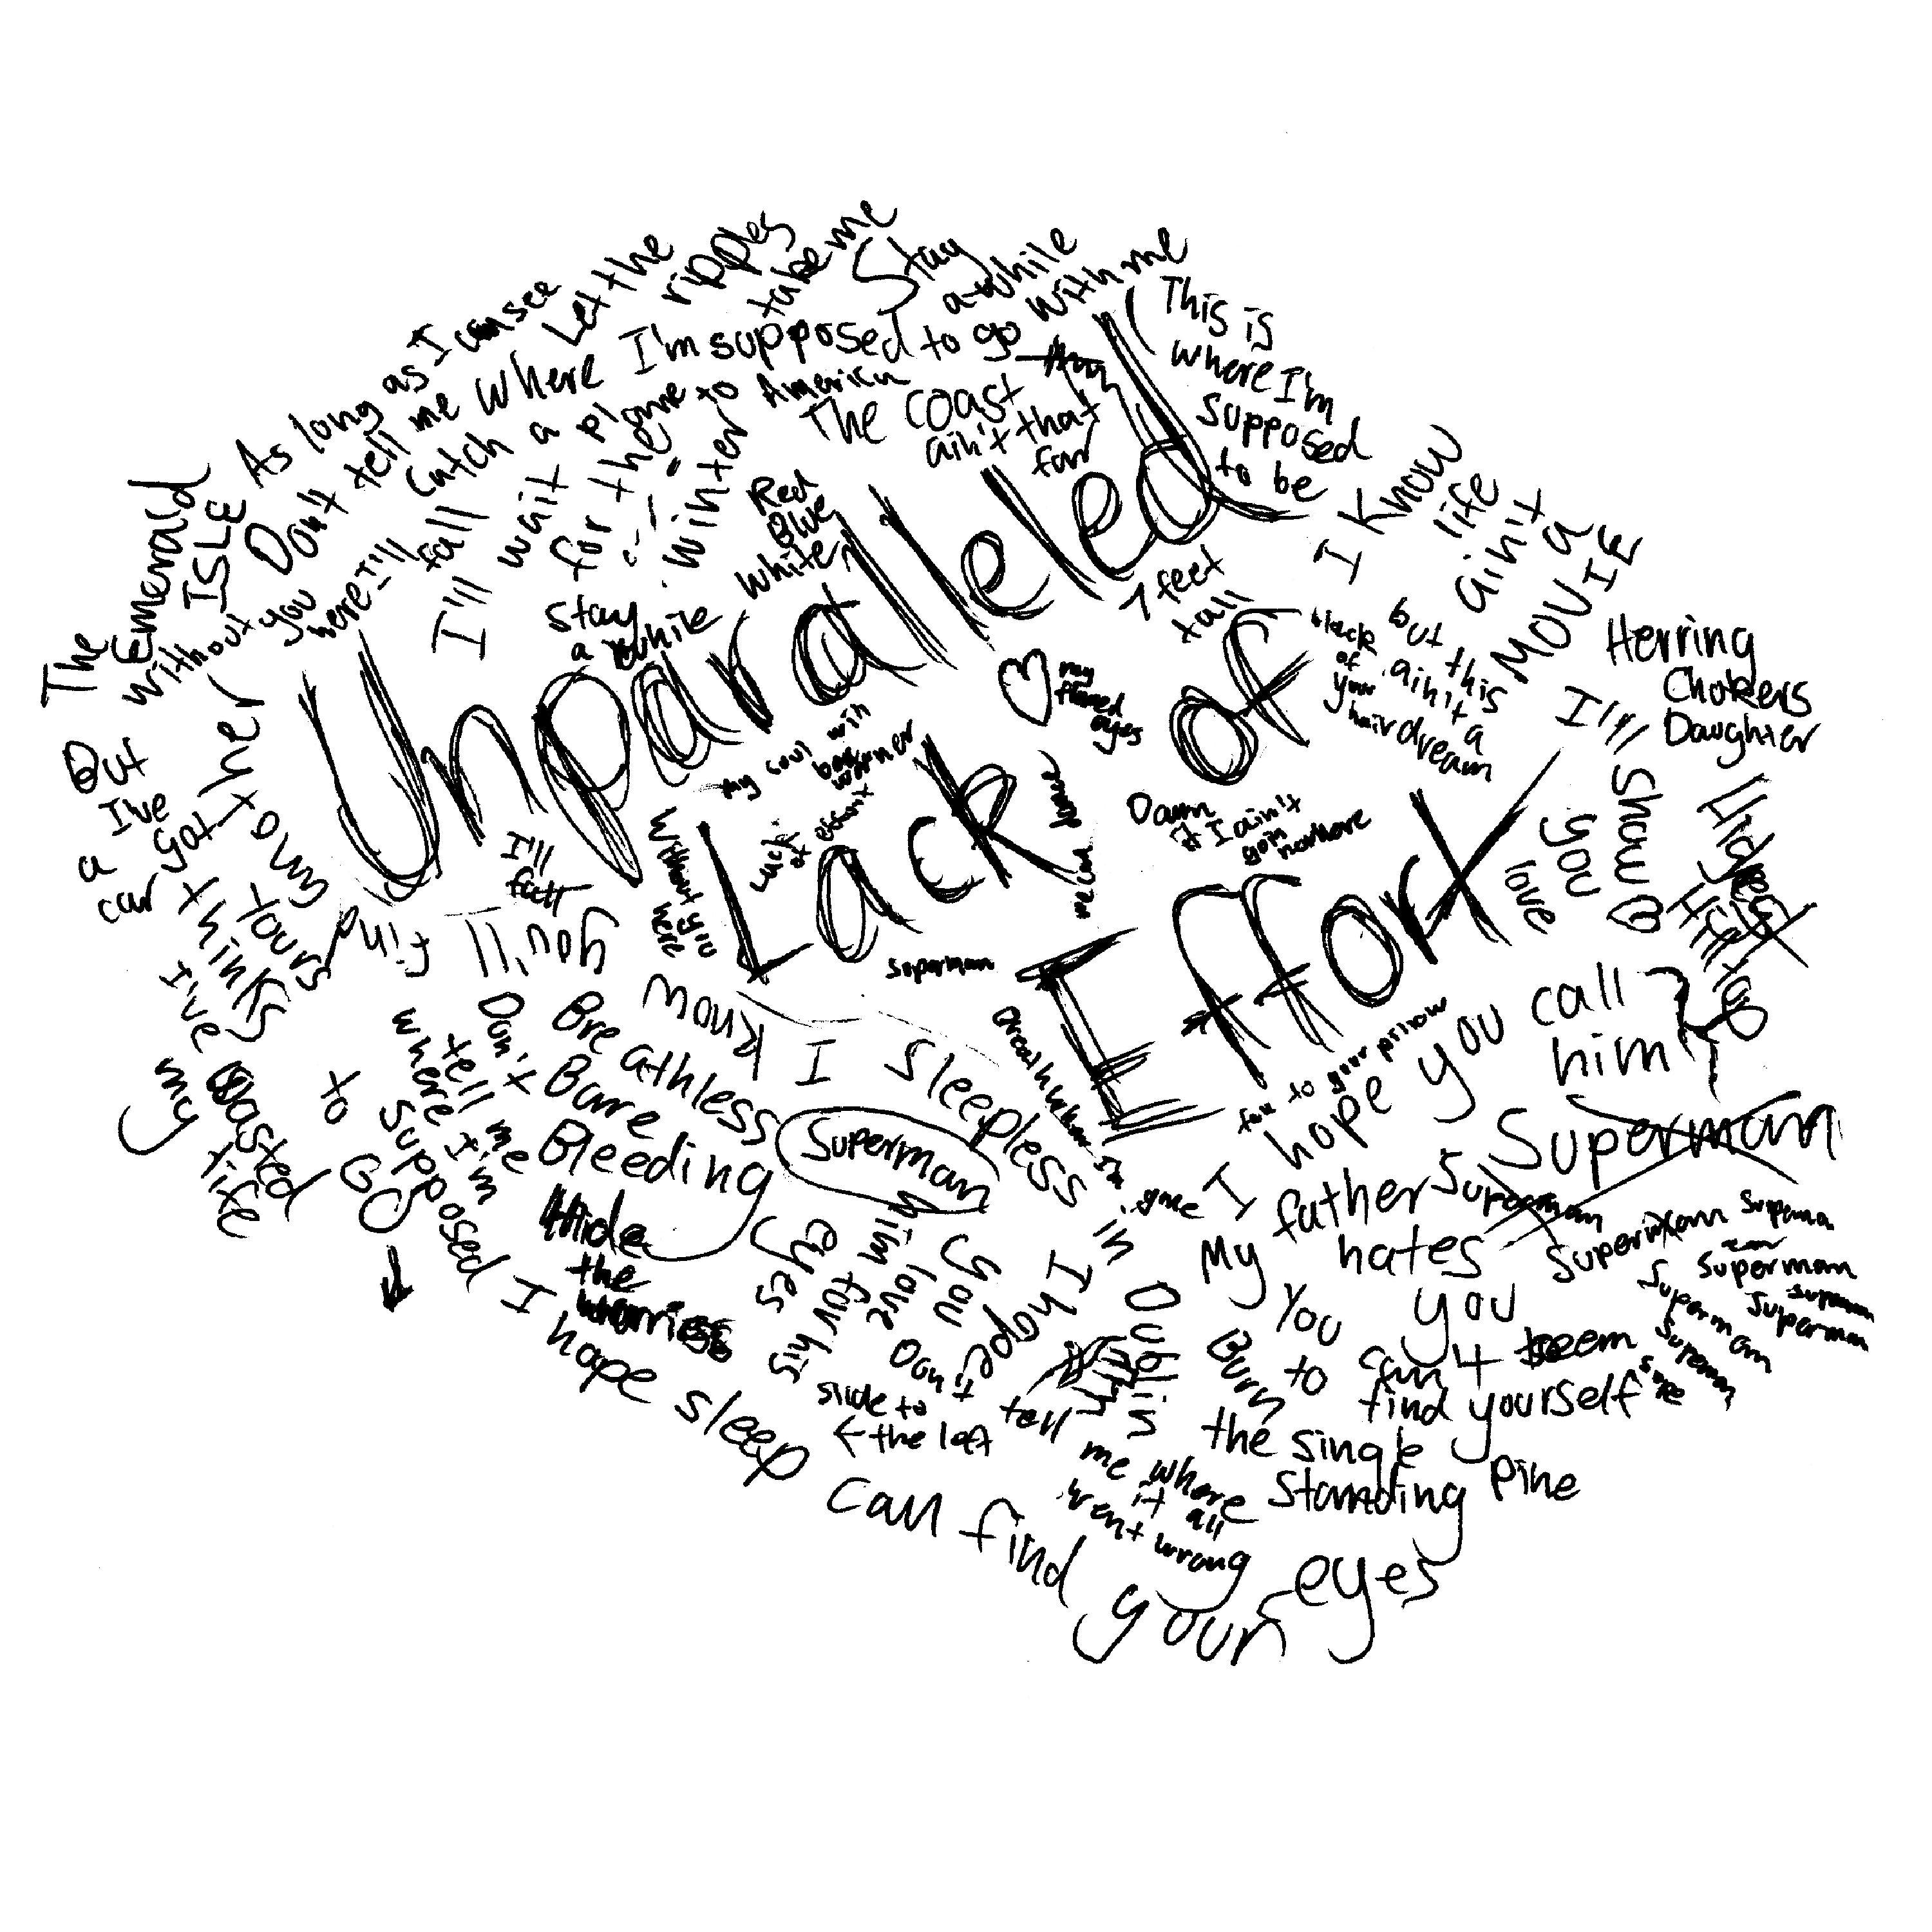 Unparalleled
Lack of
Effort
The
Emerald
ISLE
As long as I can see
Let the
ripples
take me
Stay
awhile
with me
Don't tell me where I'm supposed to go
Catch a plane to America
The coast
ain't that
far
This is
where I'm
supposed
to be
without you
here I'll
fall
I'll wait
for the
winter
Red
Blue
White
Stay
a while
7 feet
tall
I know
life
ain't
a
MOVIE
but this
ain't a
dream
black
of
your
hair
Herring
Chokers
Daughter
I'll show
you
love
my
flawed
eyes
Damn
it I ain't
goin
nowhere
But
I've got
a
car
her
town
thinks
yours
I've wasted
my
life
I'll
fall
Without you
here
superman
I know
you'll find
Breathless
Bare
Bleeding
Don't
tell me
where I'm
supposed
to
GO
Hide
the
worries
Superman
Sleepless in Dublin
I hope you call
him
Superman
My father
hates
you
Superman
Superman
Superman
Superman
Superman
Superman
You can't seem
to find yourself
Burn
the single
standing pine
I hope
you
love
him
for his
eyes
Don't tell
me where
it all
went wrong
slide to
the left
I hope sleep can find your eyes